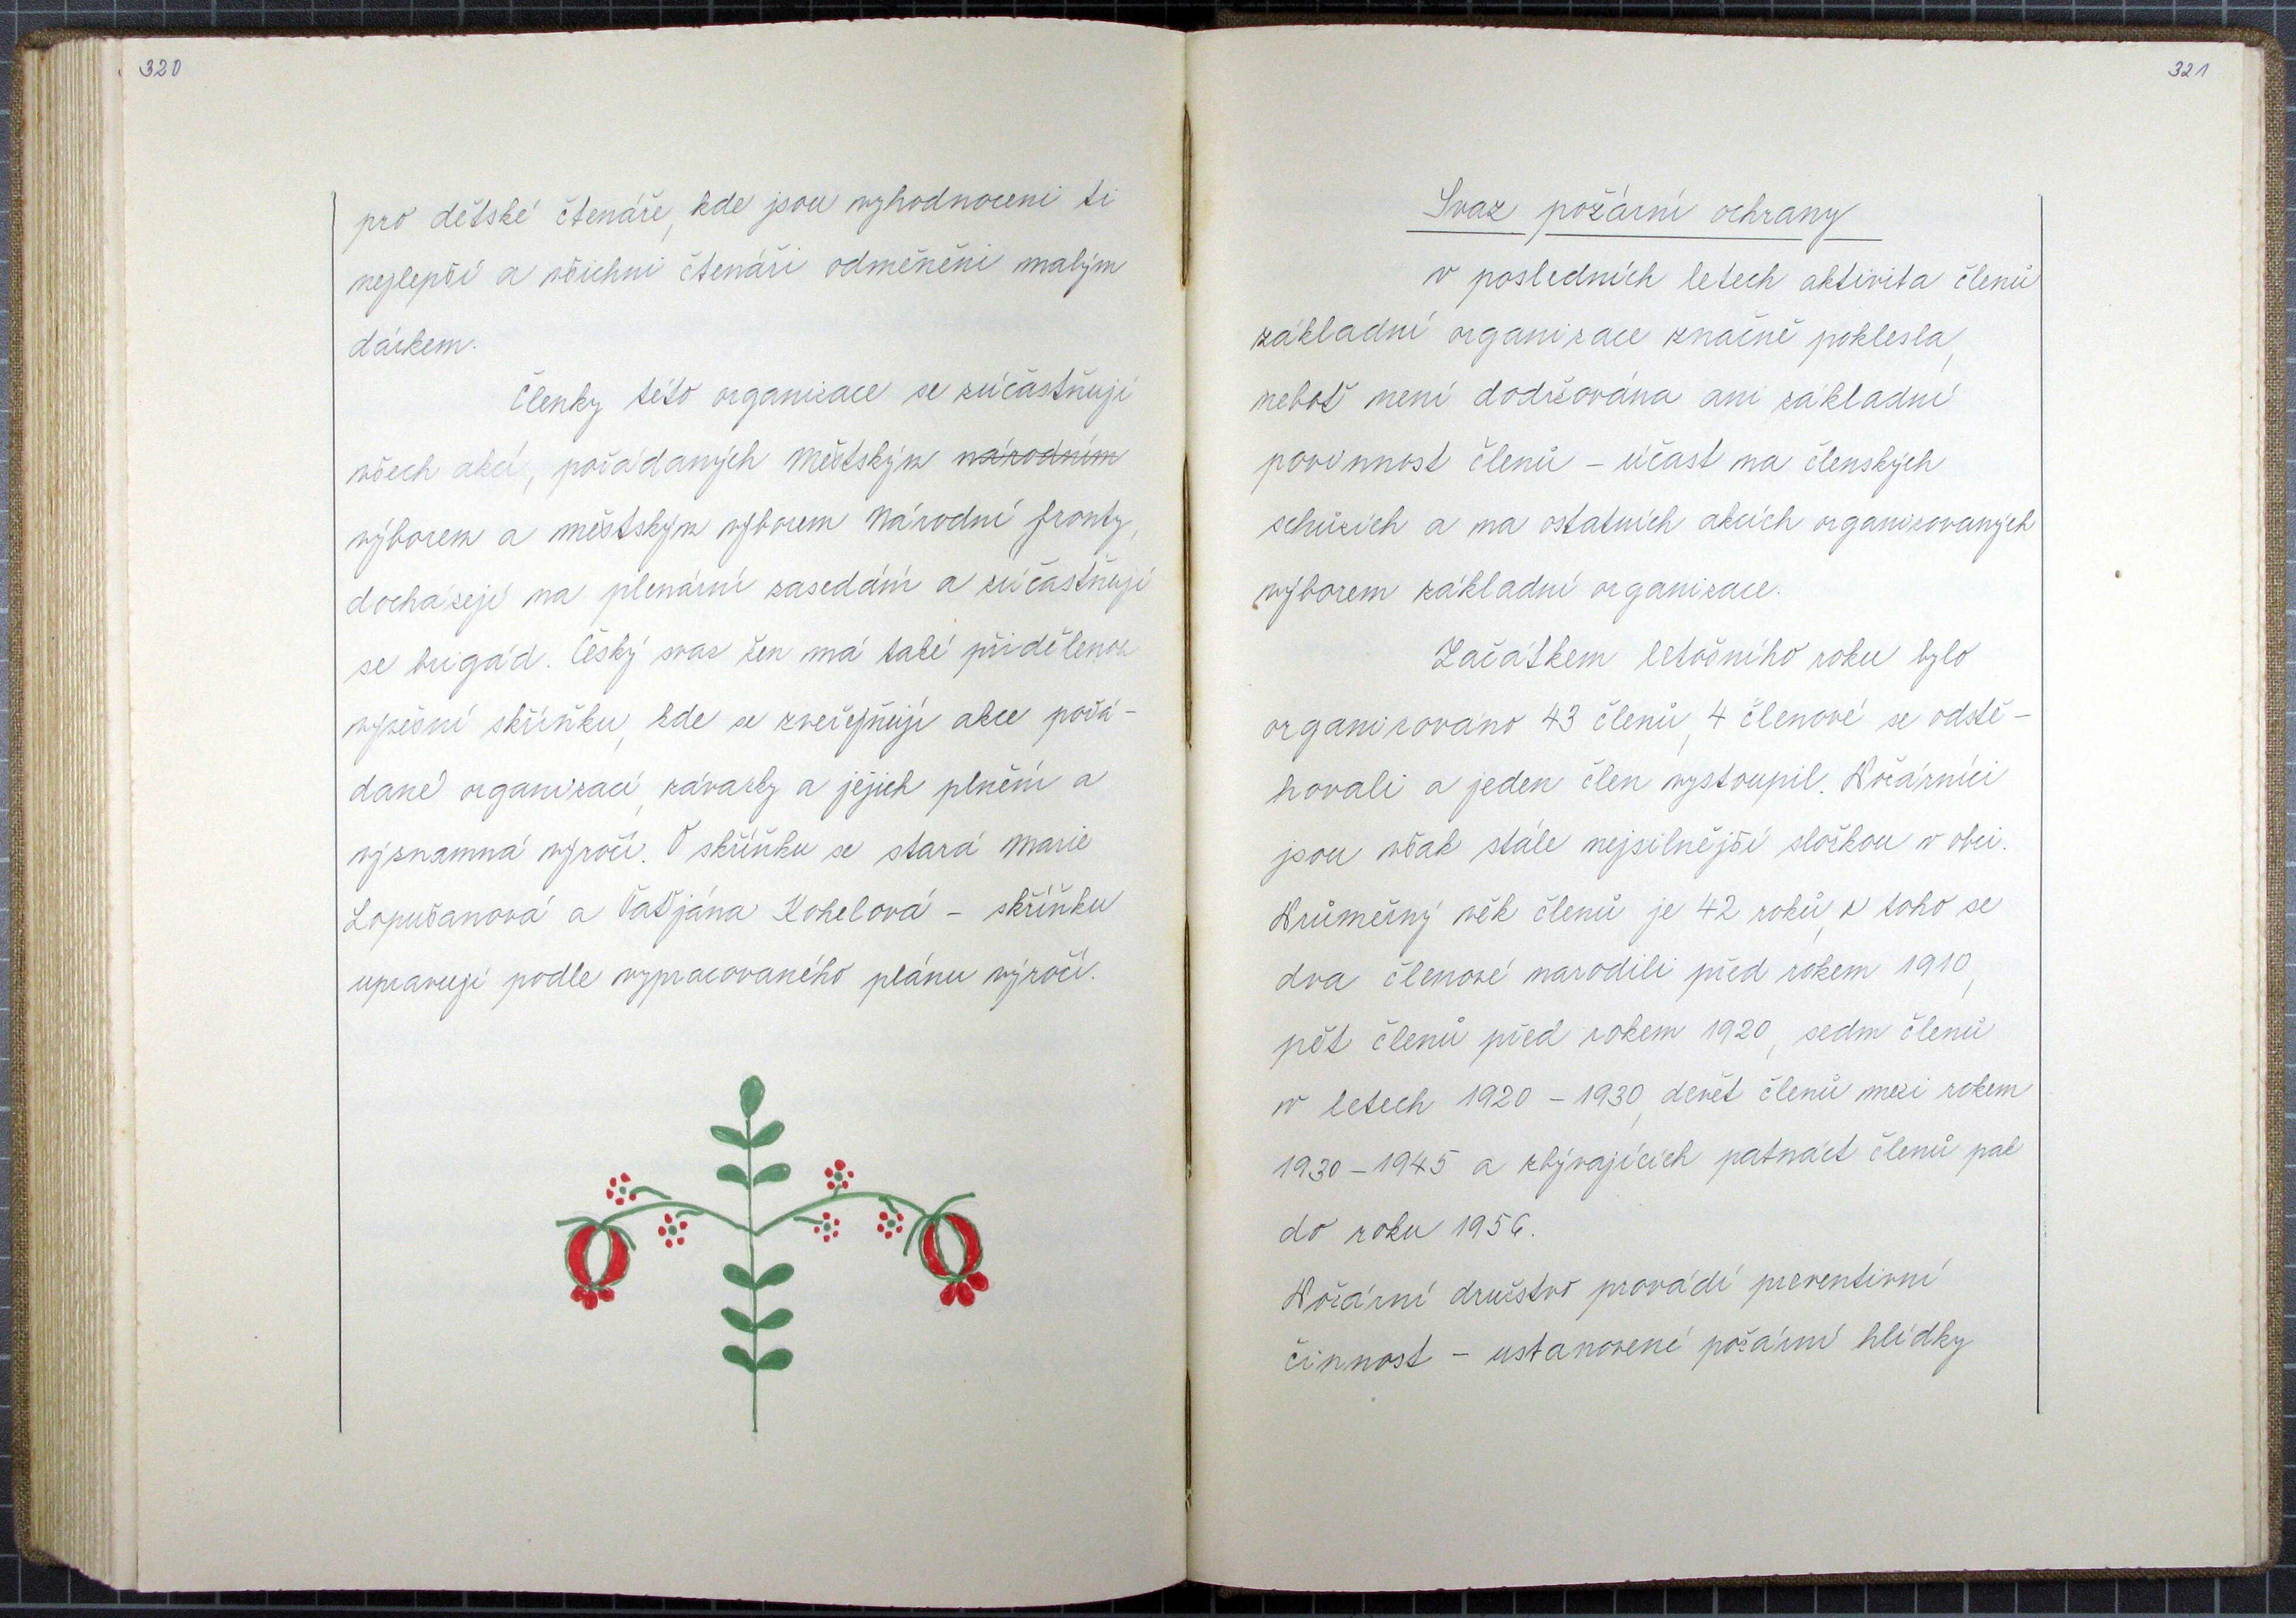 320
pro dětské čtenáře, kde jsou vyhodnoceni ti
nejlepší a všichni čtenáři odměněni malým
dárkem.
Členky této organizace se zúčastňují
všech akcí, pořádaných Městským národním
výborem a městským výborem Národní fronty,
docházejí na plenární zasedání a zúčastňují
se brigád. Český svaz žen má také přidělenou
vývěsní skříňku, kde se zveřejňují akce pořá-
dané organizací, závazky a jejich plnění a
významná výročí. O skříňku se stará Marie
Lopušanová a Taťjána Kohelová - skříňku
upravují podle vypracovaného plánu výročí.
321
Svaz požární ochrany
V posledních letech aktivita členů
základní organizace značně poklesla,
neboť není dodržována ani základní
povinnost členů - účast na členských
schůzích a na ostatních akcích organizovaných
výborem základní organizace.
Začátkem letošního roku bylo
organizováno 43 členů, 4 členové se odstě-
hovali a jeden člen vystoupil. Požárníci
jsou však stále nejsilnější složkou v obci.
Průměrný věk členů je 42 roků, z toho se
dva členové narodili před rokem 1910,
pět členů před rokem 1920, sedm členů
v letech 1920 - 1930, devět členů mezi rokem
1930 - 1945 a zbývajících patnáct členů pak
do roku 1956.
Požární družstvo provádí preventivní
činnost - ustanovené požární hlídky